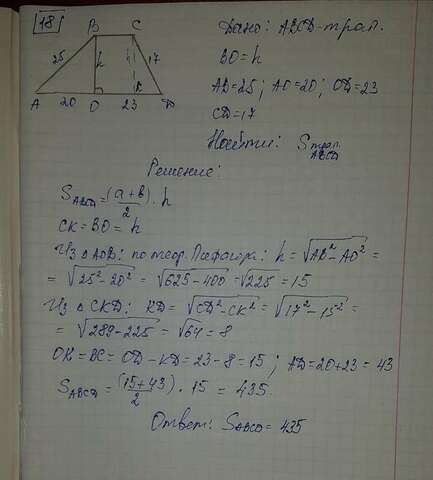 18
Дано: ABCD-трап.
B C
25 h h 17
A 20 O 23 D
BO=h
AB=25; AO=20; OD=23
CD=17
Найти: Sтрап. ABCD
Решение:
S_ABCD=(a+b)/2 · h
CK=BO=h
Из △AOB: по теор. Пифагора: h=√AB²-AO² =
=√25²-20² = √625-400 = √225 = 15
Из △CKD: KD=√CD²-CK² = √17²-15² =
= √289-225 = √64 = 8
OK=BC= OD-KD=23-8=15; AD=20+23=43
S_ABCD=(15+43)/2 · 15 = 435.
Ответ: S_ABCD=435